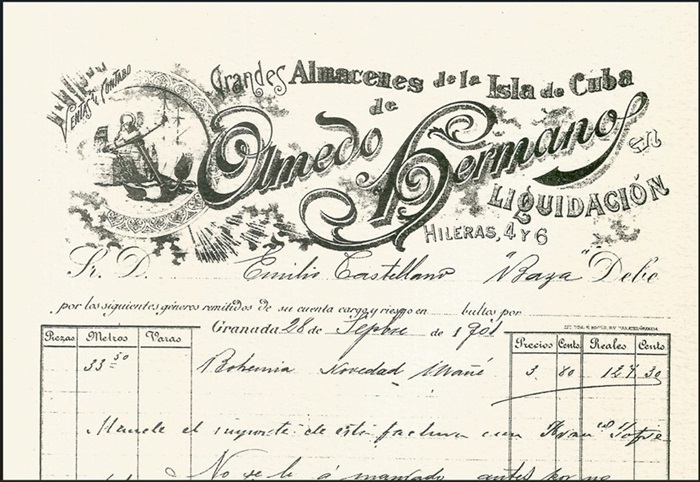 Ventas al Contado
Grandes Almacenes de la Isla de Cuba
de
Olmedo Hermanos en
LIQUIDACIÓN
HILERAS, 4 Y 6
Sr. D. Emilio Castellano "Baza" Debe
por los siguientes géneros remitidos de su cuenta cargo y riesgo en bultos por
Granada 28 de Sepbre de 1901
Piezas Metros Varas Precios Cents Reales Cents
33 50 Bohemia Novedad 3 80 127 30
Mande el importe de esta factura con
No se le á mandado antes por no